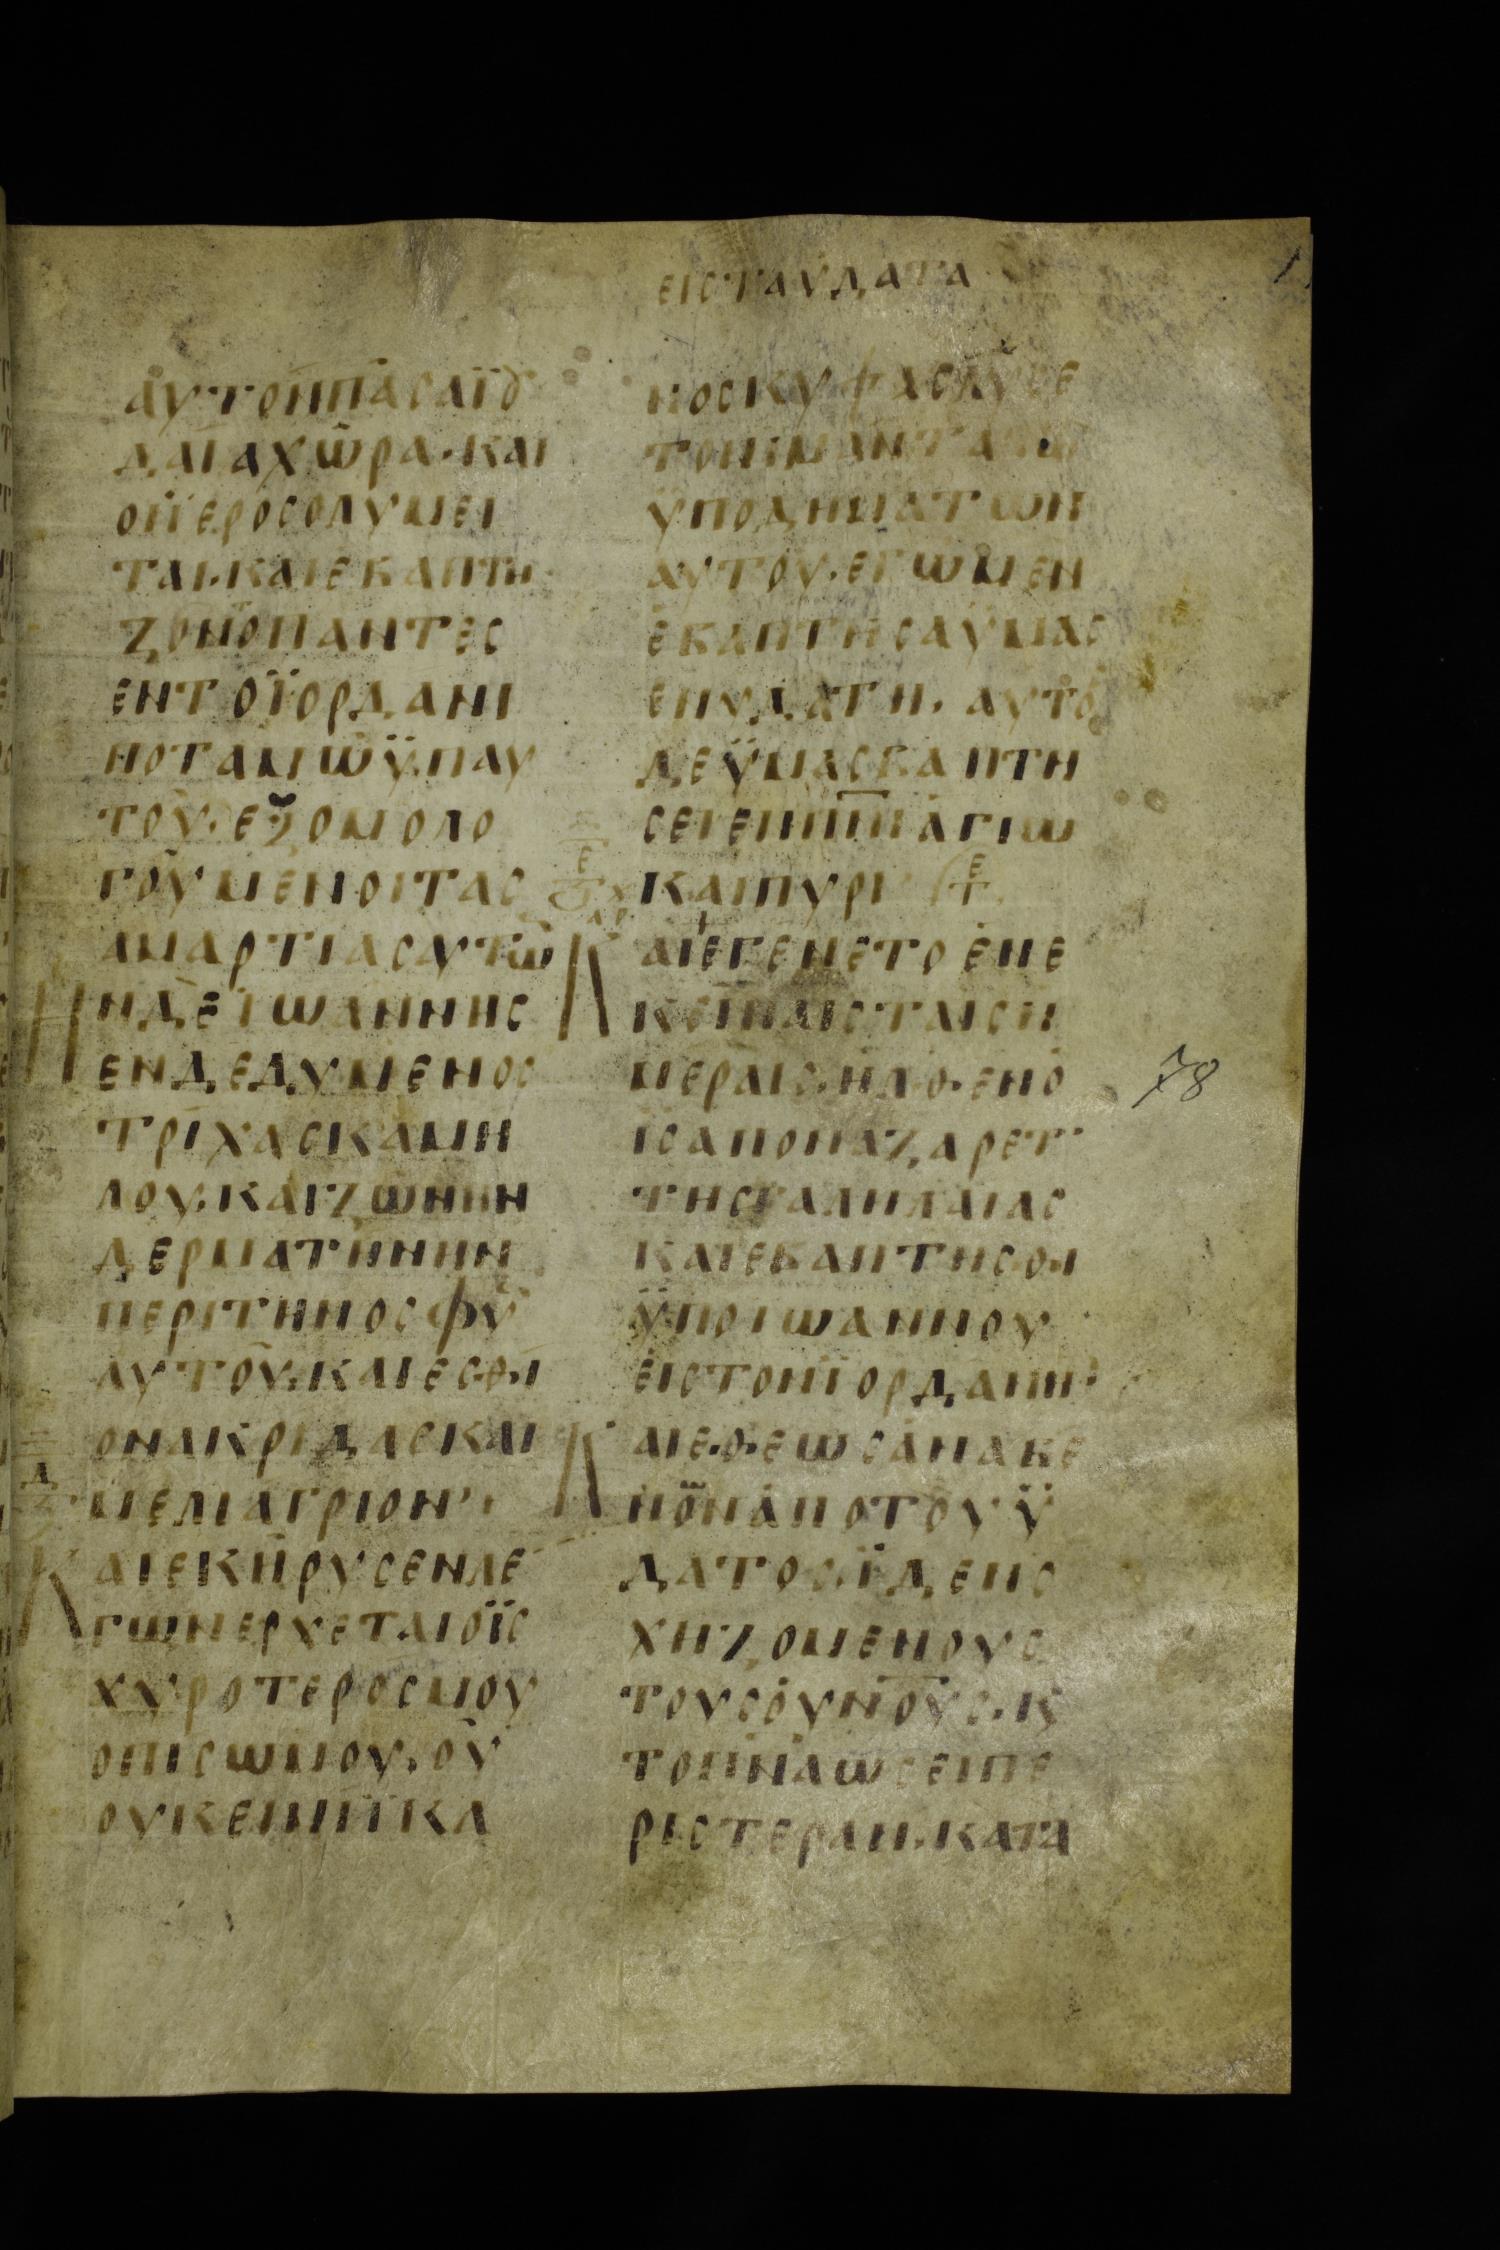 ΕΙΣΤΑΥΔΑΤΑ
ΑΥΤΟΝΠΑCΑΪΟΥ
ΔΑΙΑΧΩΡΑ·ΚΑΙ
ΟΙΪΕΡΟCΟΛΥΜΕΙ
ΤΑΙ·ΚΑΙΕΒΑΠΤΗ
ΖΟΝΤΟΠΑΝΤΕC
ΕΝΤΟΪΟΡΔΑΝΙ
ΠΟΤΑΜΩΫΠΑΥ
ΤΟΥ·ΕΞΟΜΟΛΟ
ΓΟΥΜΕΝΟΙΤΑC
ΑΜΑΡΤΙΑCΑΥΤΩ
ΗΝΔΕΙΩΑΝΝΗC
ΕΝΔΕΔΥΜΕΝΟC
ΤΡΙΧΑCΚΑΜΗ
ΛΟΥ·ΚΑΙΖΩΝΗΝ
ΔΕΡΜΑΤΗΝΗΝ
ΠΕΡΙΤΗΝΟCΦΥ
ΑΥΤΟΥ·ΚΑΙΕCΘΙ
ΟΝΑΚΡΙΔΑCΚΑΙ
ΜΕΛΙΑΓΡΙΟΝ·
ΚΑΙΕΚΗΡΥCΕΝΛΕ
ΓΩΝΕΡΧΕΤΑΙΟΪC
ΧΥΡΟΤΕΡΟCΜΟΥ
ΟΠΙCΩΜΟΥ·ΟΥ
ΟΥΚΕΙΜΙΪΚΑ
ΝΟCΚΥΦΑCΛΥCΕ
ΤΟΝΙΜΑΝΤΑΤΩ
ΫΠΟΔΗΜΑΤΩΝ
ΑΥΤΟΥ·ΕΓΩΜΕΝ
ΕΒΑΠΤΗCΑΫΜΑC
ΕΝΥΔΑΤΗ·ΑΥΤΟC
ΔΕΫΜΑCΒΑΠΤΗ
CΕΙΕΝΠΝΙΑΓΙΩ
ΚΑΙΠΥΡΙ
ΚΑΙΕΓΕΝΕΤΟΕΝΕ
ΚΕΙΝΑΙCΤΑΙCΗ
ΜΕΡΑΙC·ΗΛΘΕΝΟ
ΙCΑΠΟΝΑΖΑΡΕΤ
ΤΗCΓΑΛΗΛΑΙΑC
ΚΑΙΕΒΑΠΤΗCΘΙ
ΫΠΟΙΩΑΝΝΟΥ
ΕΙCΤΟΝΪΟΡΔΑΝΗ
ΚΑΙΕΘΕΩCΑΝΑΒΕ
ΝΟΝΑΠΟΤΟΥΫ
ΔΑΤΟC·ΪΔΕΝC
ΧΗΖΟΜΕΝΟΥC
ΤΟΥCΟΥΝΟΥC·Κ
ΤΟΠΝΑΩCΕΙΠΕ
ΡΙCΤΕΡΑΝ·ΚΑΤΑ
78